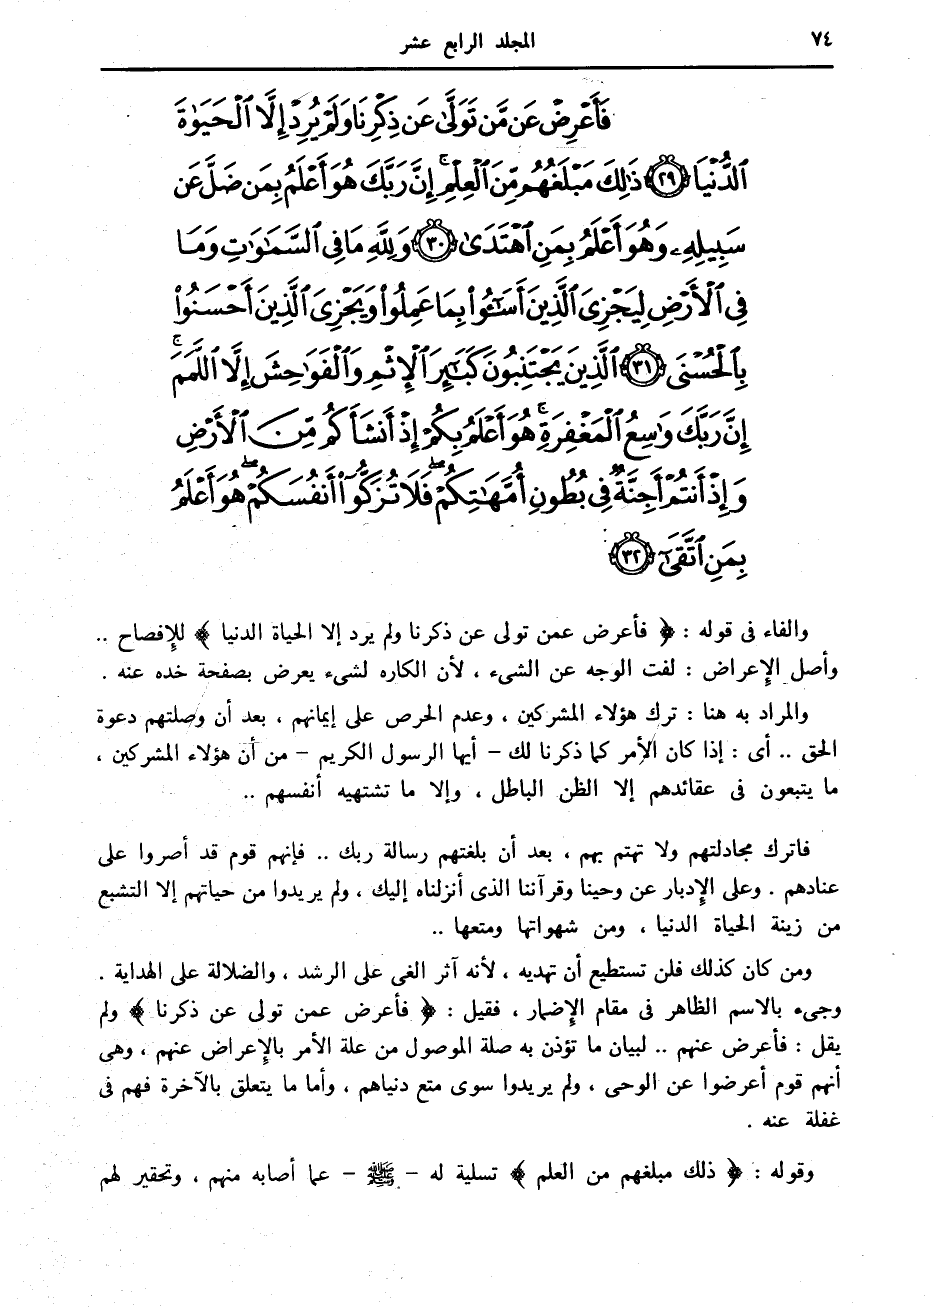 ٧٤ المجلد الرابع عشر
فَأَعْرِضْ عَن مَّن تَوَلَّىٰ عَن ذِكْرِنَا وَلَمْ يُرِدْ إِلَّا ٱلْحَيَوٰةَ
ٱلدُّنْيَا ﴿٢٩﴾ ذَٰلِكَ مَبْلَغُهُم مِّنَ ٱلْعِلْمِ ۚ إِنَّ رَبَّكَ هُوَ أَعْلَمُ بِمَن ضَلَّ عَن
سَبِيلِهِۦ وَهُوَ أَعْلَمُ بِمَنِ ٱهْتَدَىٰ ﴿٣٠﴾ وَلِلَّهِ مَا فِى ٱلسَّمَـٰوَٰتِ وَمَا
فِى ٱلْأَرْضِ لِيَجْزِىَ ٱلَّذِينَ أَسَـٰٓـُٔوا۟ بِمَا عَمِلُوا۟ وَيَجْزِىَ ٱلَّذِينَ أَحْسَنُوا۟
بِٱلْحُسْنَى ﴿٣١﴾ ٱلَّذِينَ يَجْتَنِبُونَ كَبَـٰٓئِرَ ٱلْإِثْمِ وَٱلْفَوَٰحِشَ إِلَّا ٱللَّمَمَ ۚ
إِنَّ رَبَّكَ وَٰسِعُ ٱلْمَغْفِرَةِ ۚ هُوَ أَعْلَمُ بِكُمْ إِذْ أَنشَأَكُم مِّنَ ٱلْأَرْضِ
وَإِذْ أَنتُمْ أَجِنَّةٌ فِى بُطُونِ أُمَّهَـٰتِكُمْ ۖ فَلَا تُزَكُّوٓا۟ أَنفُسَكُمْ ۖ هُوَ أَعْلَمُ
بِمَنِ ٱتَّقَىٰٓ ﴿٣٢﴾
والفاء فى قوله : ﴿ فأعرض عمن تولى عن ذكرنا ولم يرد إلا الحياة الدنيا ﴾ للإفصاح ..
وأصل الإعراض : لفت الوجه عن الشىء ، لأن الكاره لشىء يعرض بصفحة خده عنه .
والمراد به هنا : ترك هؤلاء المشركين ، وعدم الحرص على إيمانهم ، بعد أن وصلتهم دعوة
الحق .. أى : إذا كان الأمر كما ذكرنا لك – أيها الرسول الكريم – من أن هؤلاء المشركين ،
ما يتبعون فى عقائدهم إلا الظن الباطل ، وإلا ما تشتهيه أنفسهم ..
فاترك مجادلتهم ولا تهتم بهم ، بعد أن بلغتهم رسالة ربك .. فإنهم قوم قد أصروا على
عنادهم . وعلى الإدبار عن وحينا وقرآننا الذى أنزلناه إليك ، ولم يريدوا من حياتهم إلا التشبع
من زينة الحياة الدنيا ، ومن شهواتها ومتعها ..
ومن كان كذلك فلن تستطيع أن تهديه ، لأنه آثر الغى على الرشد ، والضلالة على الهداية .
وجىء بالاسم الظاهر فى مقام الإضمار ، فقيل : ﴿ فأعرض عمن تولى عن ذكرنا ﴾ ولم
يقل : فأعرض عنهم .. لبيان ما تؤذن به صلة الموصول من علة الأمر بالإعراض عنهم ، وهى
أنهم قوم أعرضوا عن الوحى ، ولم يريدوا سوى متع دنياهم ، وأما ما يتعلق بالآخرة فهم فى
غفلة عنه .
وقوله : ﴿ ذلك مبلغهم من العلم ﴾ تسلية له – ﷺ – عما أصابه منهم ، وتحقير لهم